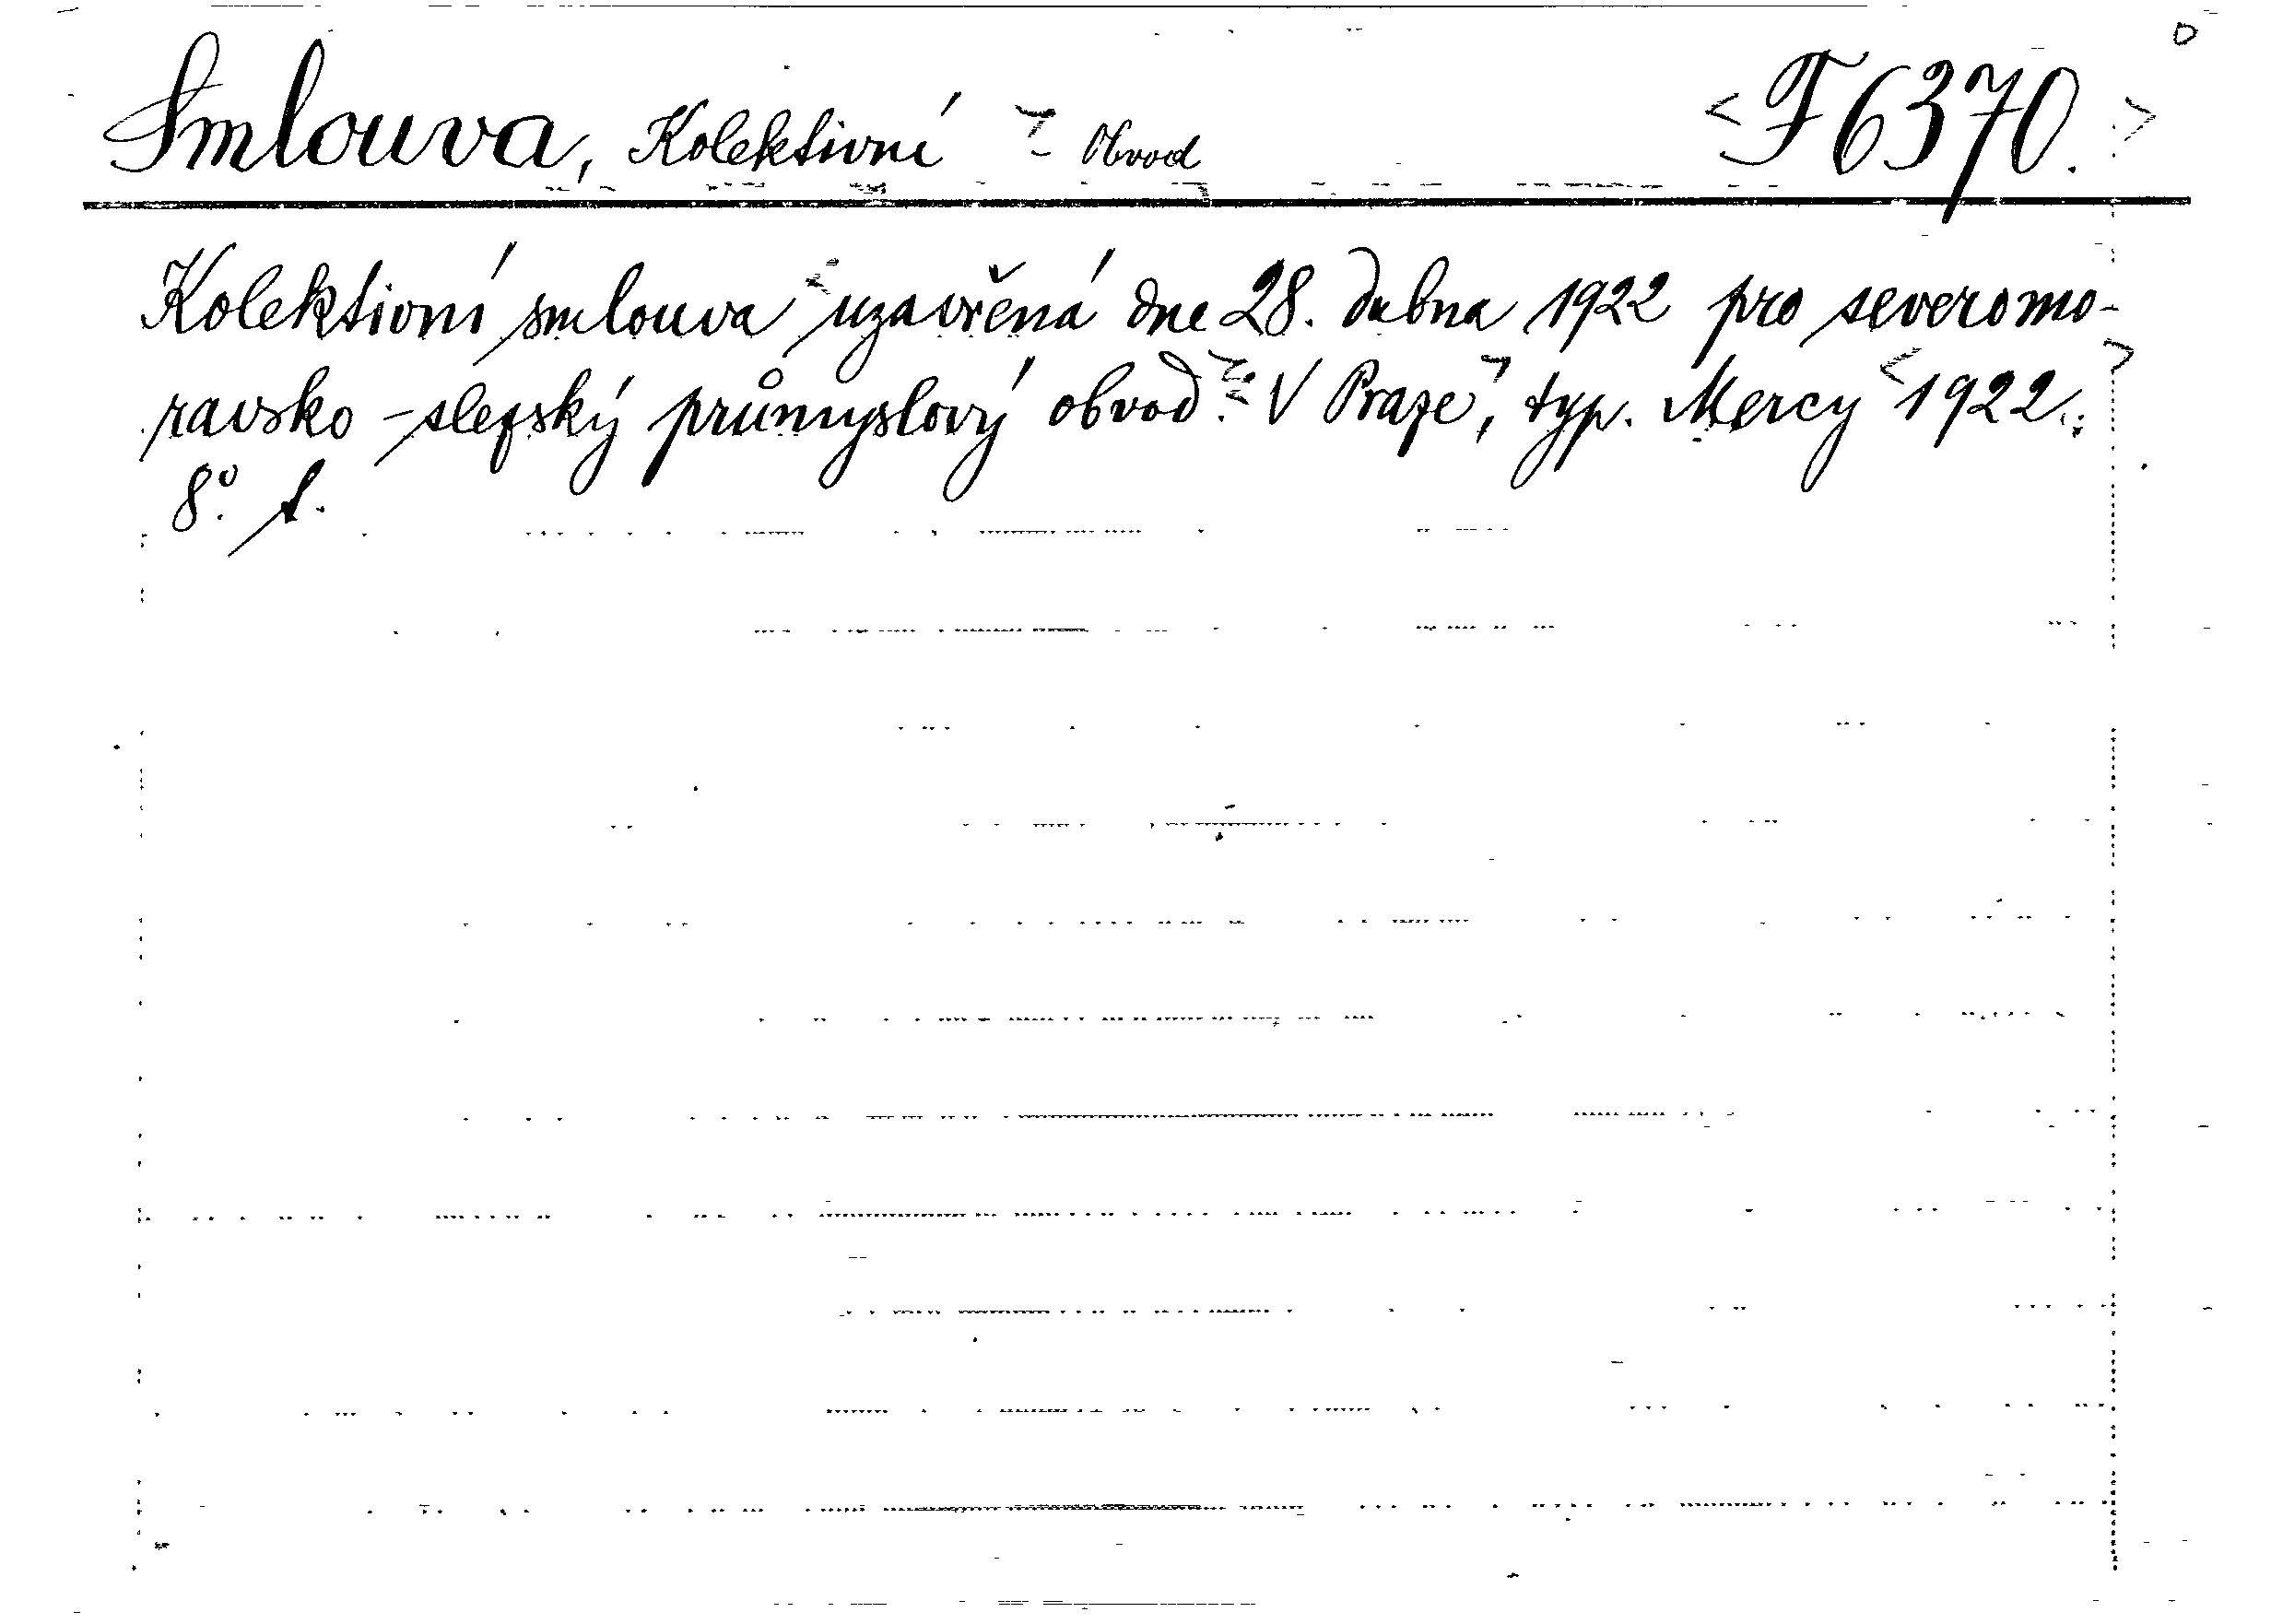 Smlouva, Kolektivní - Obvod <F 6370.>
Kolektivní smlouva uzavřená dne 28. dubna 1922 pro severomo-
ravsko-slezský průmyslový obvod. V Praze, typ. Mercy 1922.
8°. f.